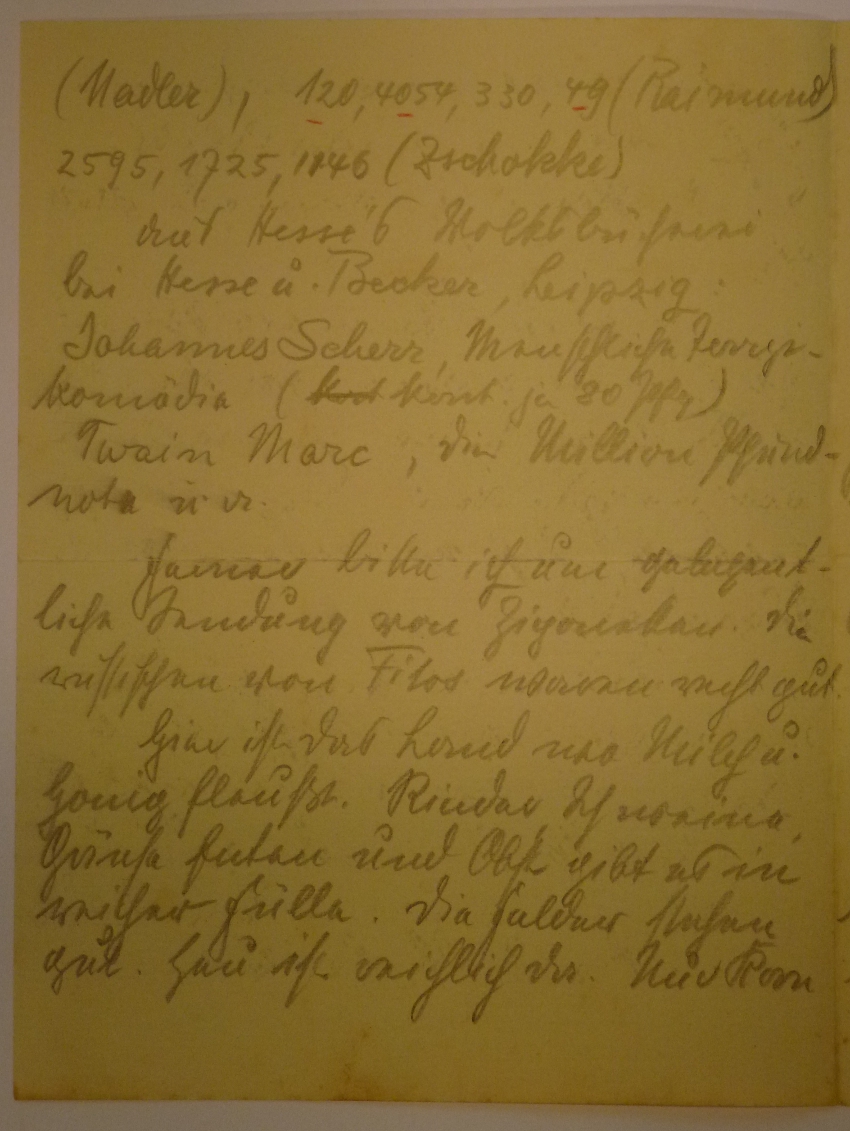 (Nadler), 120, 4054, 330, 49 (Raimund)
2595, 1725, 1146 (Zschokke)
aus Hesse's Volksbücherei
bei Hesse u. Becker, Leipzig:
Johannes Scherr, Menschliche Tragi-
komödie ( kart. je 80 Pfg)
Twain Marc, die Million Pfund-
note u. a.
Ferner bitte ich um gelegent-
liche Sendung von Zigaretten. Die
russischen von Titos waren recht gut.
Hier ist das Land wo Milch u.
Honig fleußt. Rinder, Schweine,
Gänse Enten und Obst gibt es in
reicher Fülle. Die Felder stehen
gut. Heu ist reichlich da. Nur Korn